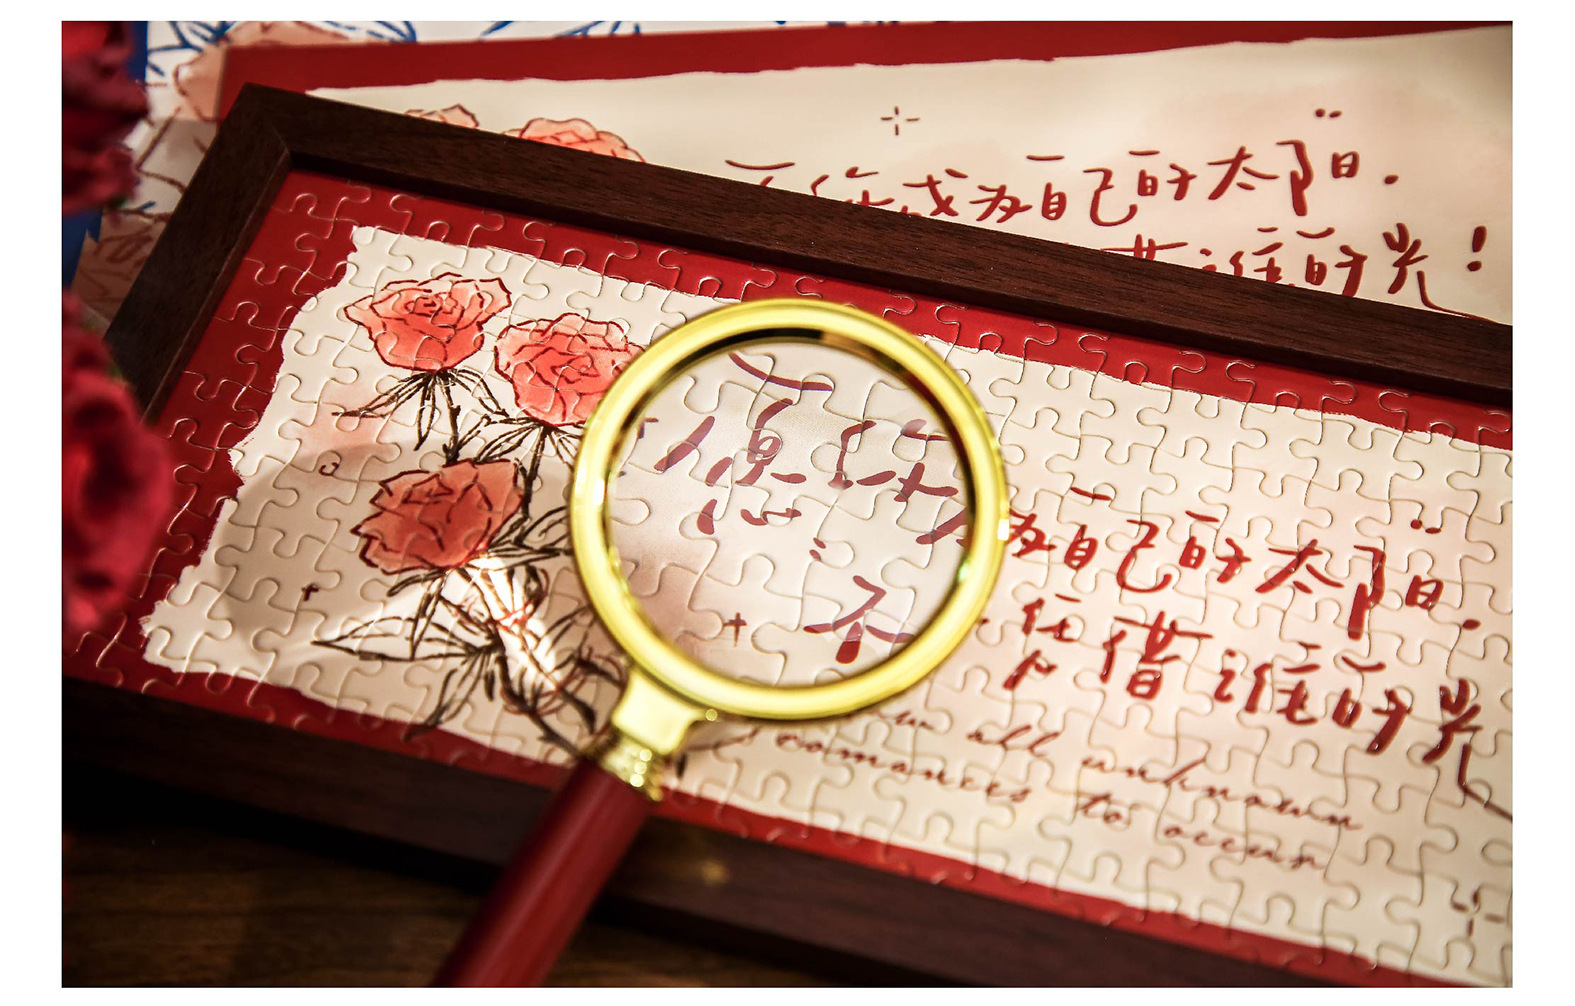 你成为自己的太阳.
借谁的光!
愿你 为自己的太阳.
不 凭借谁的光
all unknown
to occur